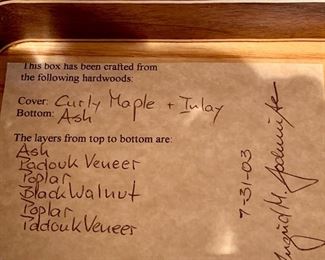 This box has been crafted from
the following hardwoods:
Cover: Curly Maple + Inlay
Bottom: Ash
The layers from top to bottom are:
Ash
Padouk Veneer
Poplar
Black Walnut
Poplar
Padouk Veneer
7-31-03
Ingrid M.